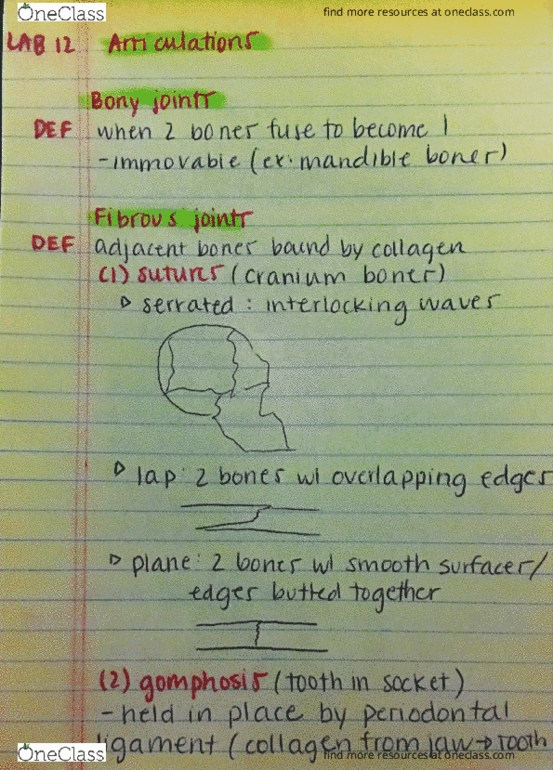 OneClass
find more resources at oneclass.com
LAB 12 Articulations
Bony joints
DEF when 2 bones fuse to become 1
-immovable (ex: mandible bones)
Fibrous joints
DEF adjacent bones bound by collagen
(1) sutures (cranium bones)
▷ serrated : interlocking waves
▷ lap: 2 bones w/ overlapping edges
▷ plane: 2 bones w/ smooth surfaces/
edges butted together
(2) gomphosis (tooth in socket)
-held in place by periodontal
ligament (collagen from jaw→tooth
OneClass
find more resources at oneclass.com